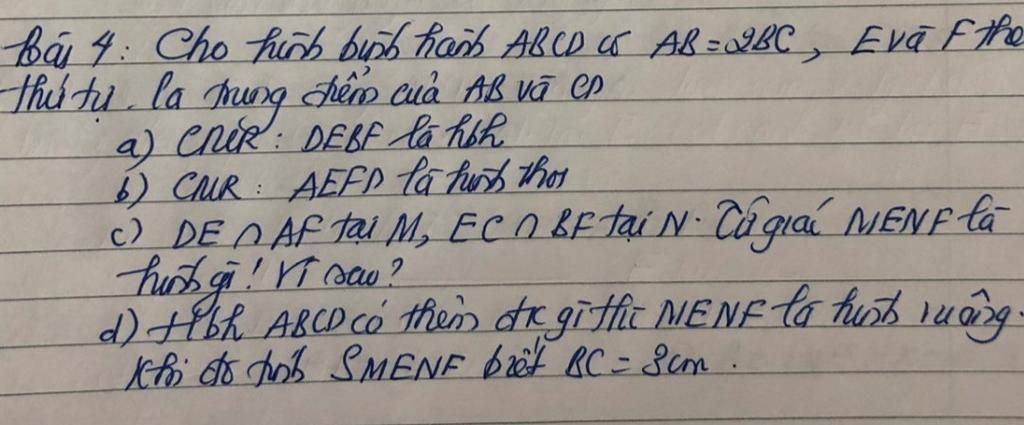 Bài 4: Cho hình bình hành ABCD có AB = 2BC, E và F theo
thứ tự. là trung điểm của AB và CD
a) CMR: DEBF là hbh
b) CMR: AEFD là hình thoi
c) DE ∩ AF tại M, EC ∩ BF tại N. Tứ giác MENF là
hình gì! Vì sao?
d) Hbh ABCD có thêm đk gì thì MENF là hình vuông.
Khi đó tính SMENF biết BC = 3cm.